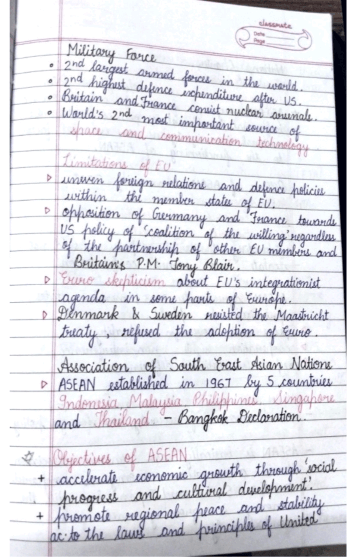 classmate
Date
Page
Military Force
• 2nd largest armed forces in the world.
• 2nd highest defence expenditure after US.
• Britain and France consist nuclear arsenals.
• World's 2nd most important source of
space and communication technology
Limitations of EU
▷ uneven foreign relations and defence policies
within the member states of EU.
▷ opposition of Germany and France towards
US policy of 'coalition of the willing' regardless
of the partnership of other EU members and
Britain's P.M. Tony Blair.
▷ Euro skepticism about EU's integrationist
agenda in some parts of Europe.
▷ Denmark & Sweden resisted the Maastricht
treaty, refused the adoption of Euro.
Association of South East Asian Nations
▷ ASEAN established in 1967 by 5 countries
Indonesia Malaysia Philippines Singapore
and Thailand - Bangkok Declaration.
Objectives of ASEAN
+ accelerate economic growth through 'social
progress and cultural development'.
+ promote regional peace and stability
ac. to the laws and principles of United